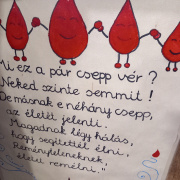 Mi ez a pár csepp vér?
Neked szinte semmit!
De másnak e néhány csepp,
az életét jelenti.
Magadnak légy hálás,
hogy segítettél élni,
Reményteleneknek,
életet remélni."